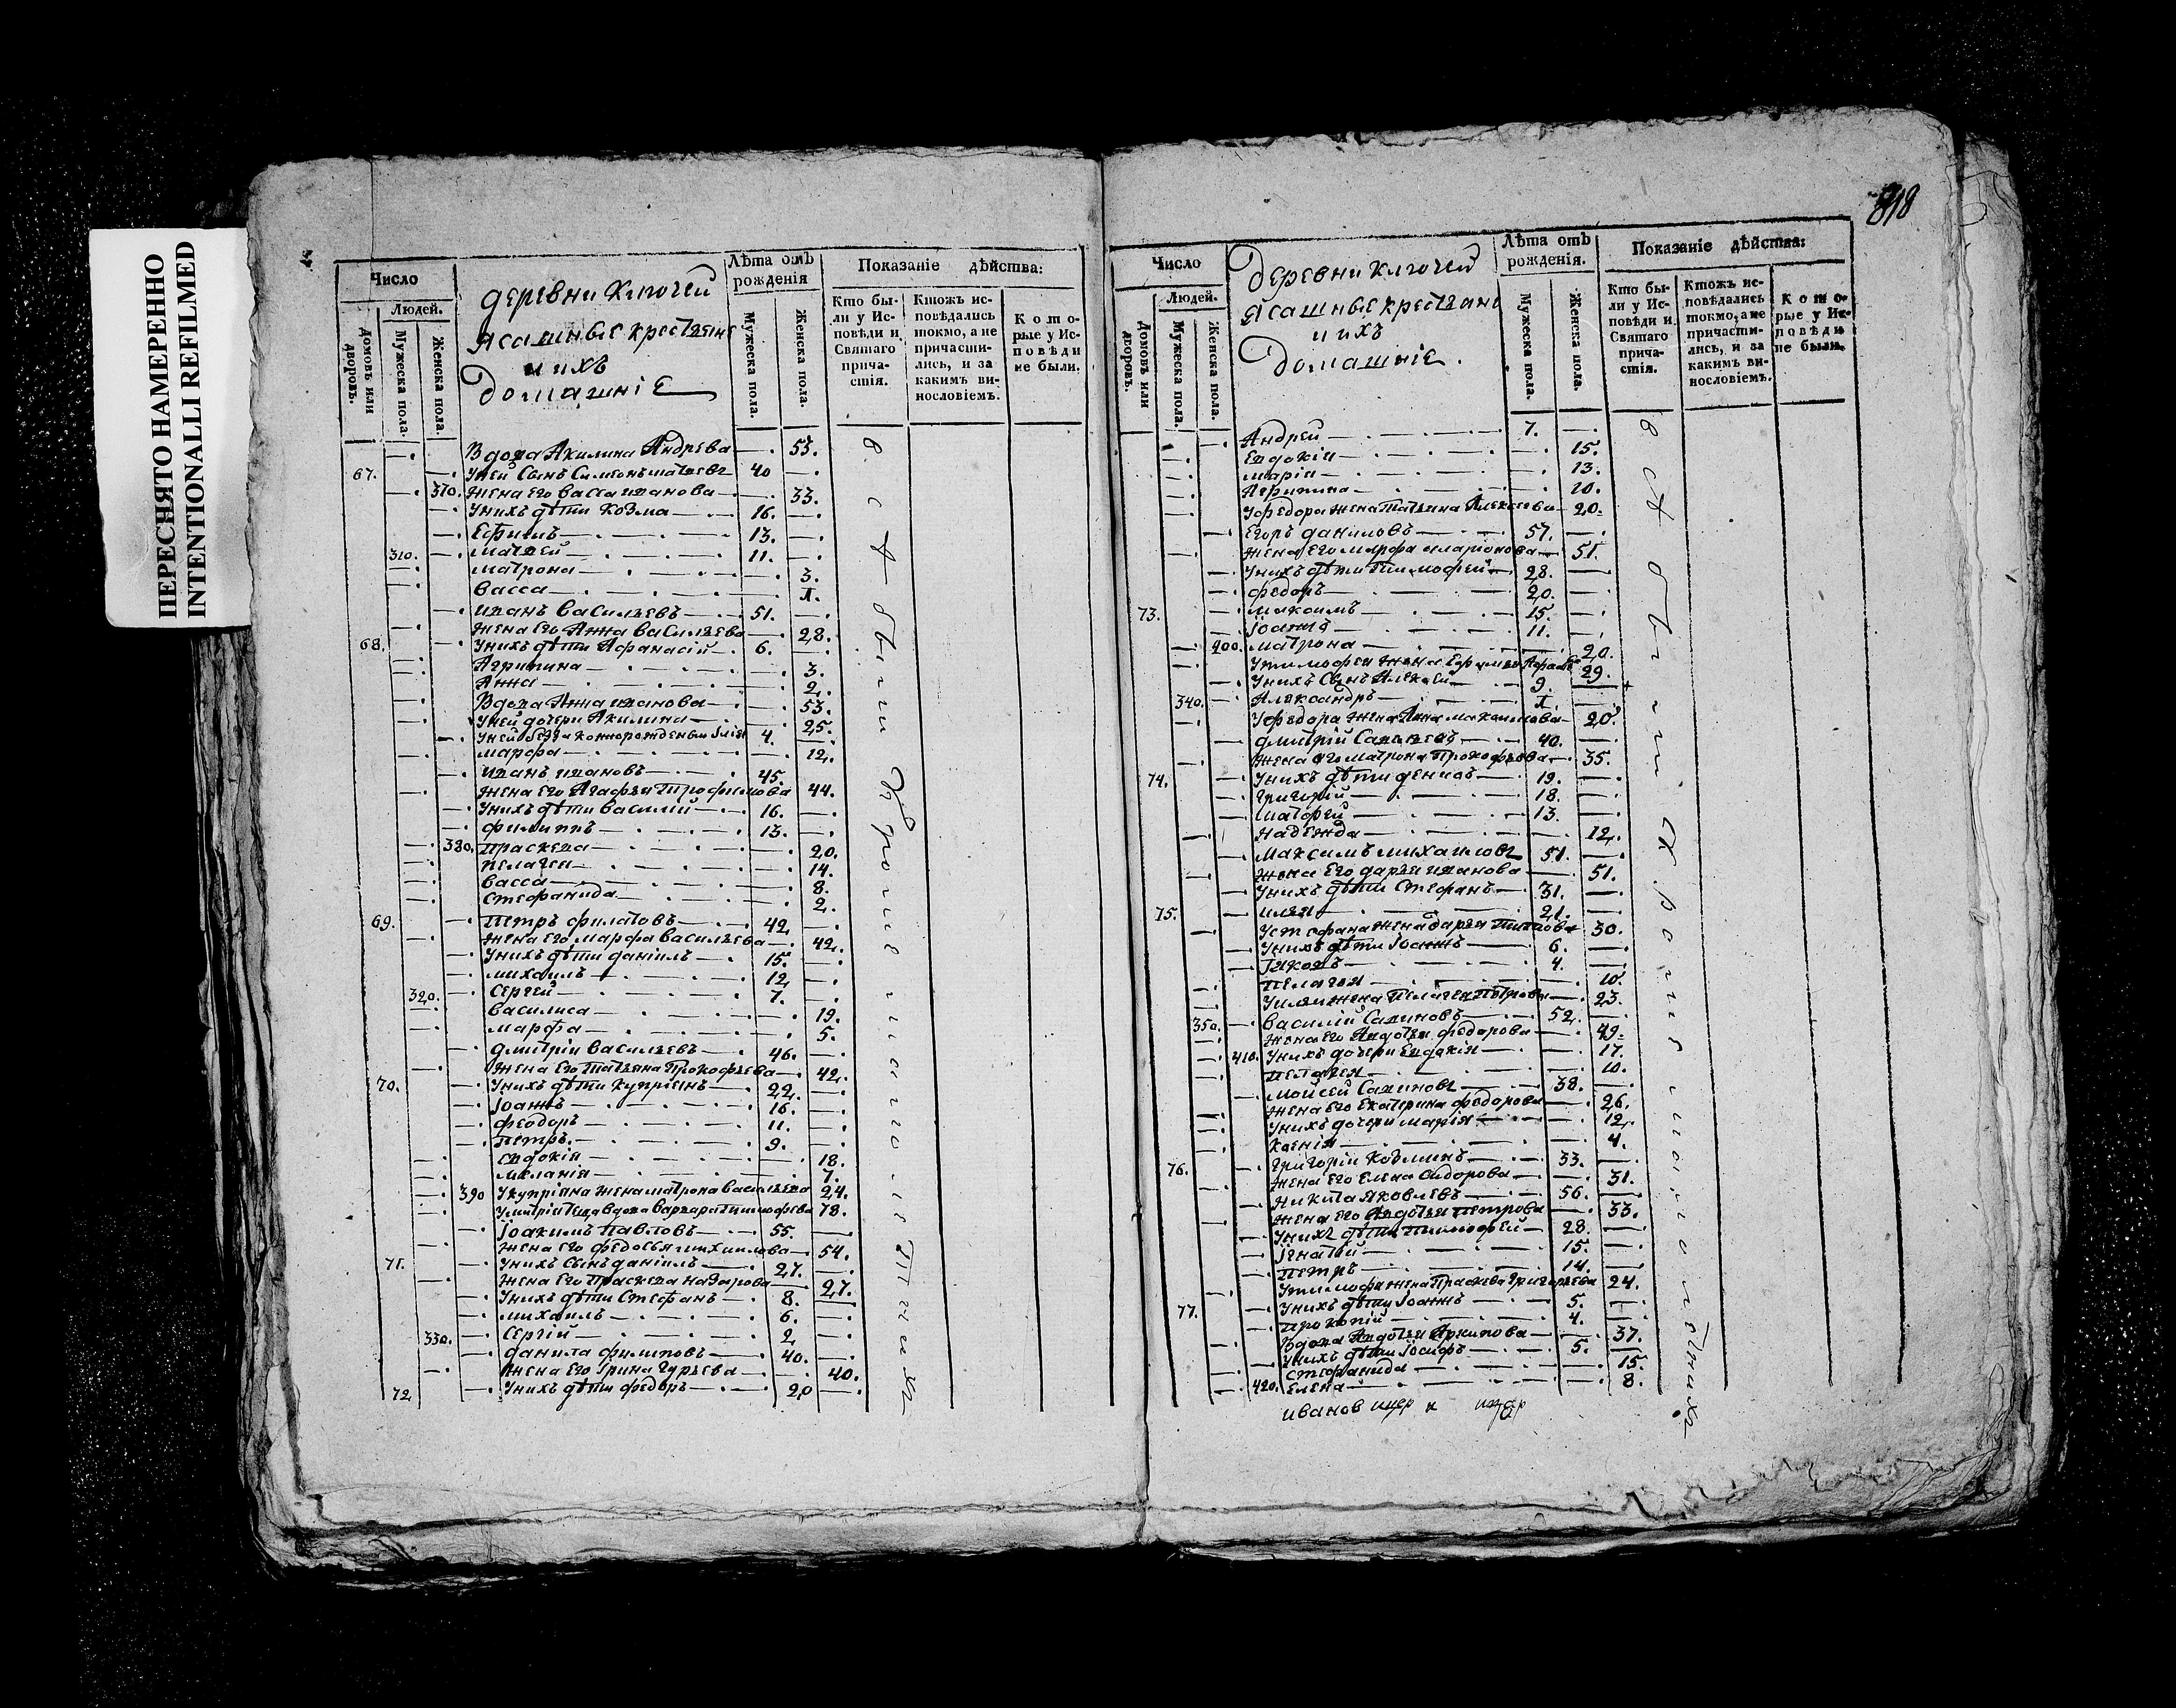 ПЕРЕСНЯТО НАМЕРЕННО
INTENTIONALLI REFILMED
Число
Людей.
Домовъ или дворовъ.
Мужеска пола.
Женска пола.
деревни Ключей
Ясашные крестьяне
и ихъ
домашнiе
Лѣта отъ рожденiя
Мужеска пола.
Женска пола.
Показанiе дѣйства:
Кто бы-
ли у Ис-
повѣди и
Святаго
прича-
стiя.
Ктожъ ис-
повѣдались
токмо, а не
причасти-
лись, и за
какимъ ви-
нословiемъ.
Кото-
рые у Ис-
повѣди
не были.
Вдова Акилина Андрева 53.
67. У ней сынъ Симеонъ матвевъ 40
370. Жена его Васса иванова 33.
У нихъ дѣти Козма 16.
Ефимъ 13.
310. Матвей 11.
матрона 3.
Васса
Иванъ Васильевъ 51.
Жена его Анна Васильева 28.
68. У нихъ дѣти Афанасiй 6.
Агрипина 3.
Анна 2.
Вдова Анна иванова 53.
У ней дочери Акилина 25.
4.
марфа 12.
Иванъ ивановъ 45.
Жена его Агафья Трофимова 44.
У нихъ дѣти Василiй 16.
Филиппъ 13.
380. Праскева 20.
Пелагея 14.
Васса 8.
Стефанида 2.
69. Петръ филатовъ 42
Жена его марфа Васильева 42.
У нихъ дѣти данiилъ 15.
михаилъ 12
320. Сергей 7.
Василиса 19.
марфа 5.
дмитрiи Васильевъ 46.
Жена его Татьяна Прокофьева 42.
70. У нихъ дѣти купрiянъ 22.
Iоаннъ 16.
феодоръ 11.
Петръ 9.
евдокiя 18.
меланiя 7.
390 У купрiяна жена матрона Васильева 24.
Вдова Варвара тимофева 78.
Iоакимъ Павловъ 55.
Жена его федосья михаилова 54.
71. У нихъ сынъ данiилъ 27.
Жена его Праскева назарова 27.
У нихъ дѣти Стефанъ 8.
михаилъ 6.
330. Сергiй 2
данила филиповъ 40.
Жена его Iрина Гурьева 40.
72. У нихъ дѣти федоръ 20
818
Число
Людей.
Домовъ или дворовъ.
Мужеска пола.
Женска пола.
Деревни ключей
Ясашные крестьяне
и ихъ
домашнiе.
Лѣта отъ рожденiя.
Мужеска пола.
Женска пола.
Показанiе дѣйства:
Кто бы-
ли у Ис-
повѣди и
Святаго
прича-
стiя.
Ктожъ ис-
повѣдались
токмо, а не
причасти-
лись, и за
какимъ ви-
нословiемъ.
Кото-
рые у Ис-
повѣди
не были.
Андрей 7.
Евдокiя 15.
марiя 13.
Агрипина 10.
У федора жена Татьяна Алексеева 20.
Егоръ даниловъ 57.
Жена его марфа иларiонова 51.
У нихъ дѣти тимофей 28.
федоръ 20.
73. максимъ 15.
Iоаннъ 11.
400. матрона 20.
29.
У нихъ сынъ Алексей 9.
340. Александръ
У федора жена Анна максимова 20.
дмитрiй Савиновъ 40.
Жена его матрона Прокофьева 35.
74. У нихъ дѣти денисъ 19.
Григорiй 18.
матфей 13.
надежда 12.
Максимъ михаиловъ 51.
Жена его дарья иванова 51.
У нихъ дѣти Стефанъ 31.
75. илья 21.
У стефана жена дарья Титова 30.
У нихъ дѣти Iоаннъ 6.
Iаковъ 4.
Пелагея 10.
У ильи жена Пелагея Петрова 23.
350. Василiй Савиновъ 52.
Жена его Авдотья федорова 49.
410. У нихъ дочери Евдокiя 17.
Пелагея 10.
Мойсей Савиновъ 38.
Жена его Екатерина федорова 26.
У нихъ дочери марiя 12.
Ксенiя 4.
76. Григорiи Козминъ 33.
Жена его Елена Сидорова 31.
Никита Яковлевъ 56.
Жена его Авдотья Петрова 53.
У нихъ дѣти тимофей 28.
Iгнатiй 15.
Петръ 14.
У тимофея жена Праскева Григорьева 24.
77. У нихъ дѣти Iоаннъ 5.
Прокопiй 4.
Вдова Авдотья Архипова 37.
У нихъ дѣти Iосифъ 5.
Стефанида 15.
420. Елена 8.